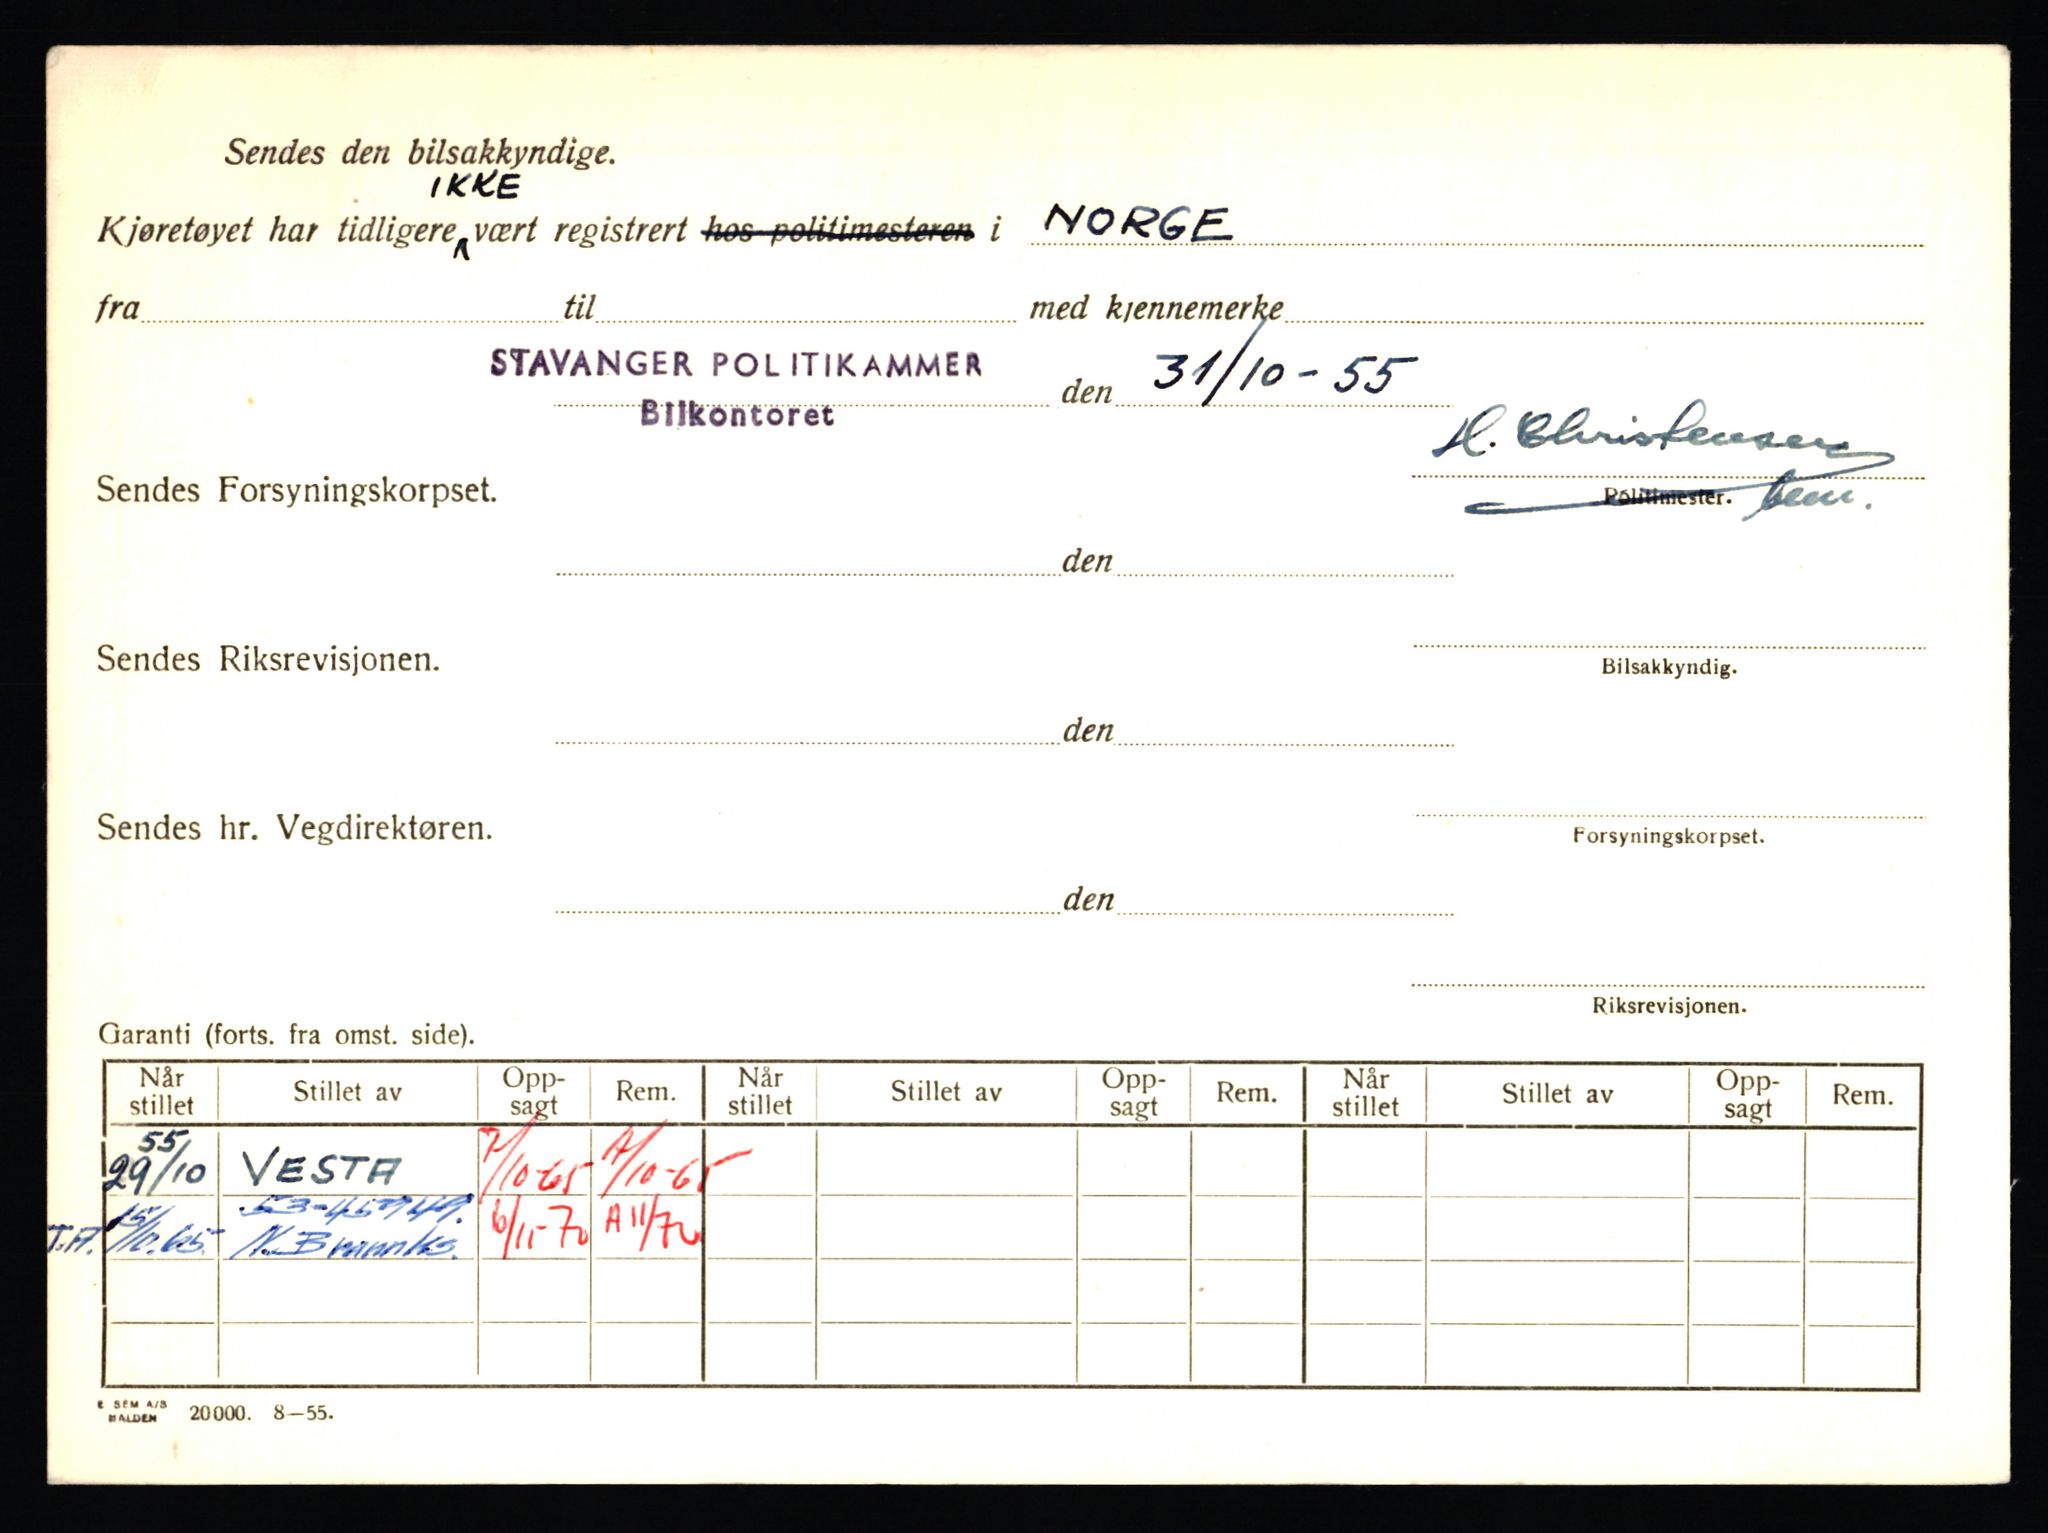 Sendes den bilsakkyndige.
IKKE
Kjøretøyet har tidligere vært registrert hos politimesteren i NORGE
fra til med kjennemerke
STAVANGER POLITIKAMMER
Bilkontoret
den 31/10-55
H. Christensen
Sendes Forsyningskorpset.
Politimester.
den
Sendes Riksrevisjonen.
Bilsakkyndig.
den
Sendes hr. Vegdirektøren.
Forsyningskorpset.
den
Riksrevisjonen.
Garanti (forts. fra omst. side).
Når stillet Stillet av Opp-sagt Rem. Når stillet Stillet av Opp-sagt Rem. Når stillet Stillet av Opp-sagt Rem.
55
29/10 VESTA 7/10-65 /10-65
53-45949.
T.A. 15/10.65. N. Brannks. 6/11-70 A 11/70
E SEM A/S
HALDEN 20000. 8—55.